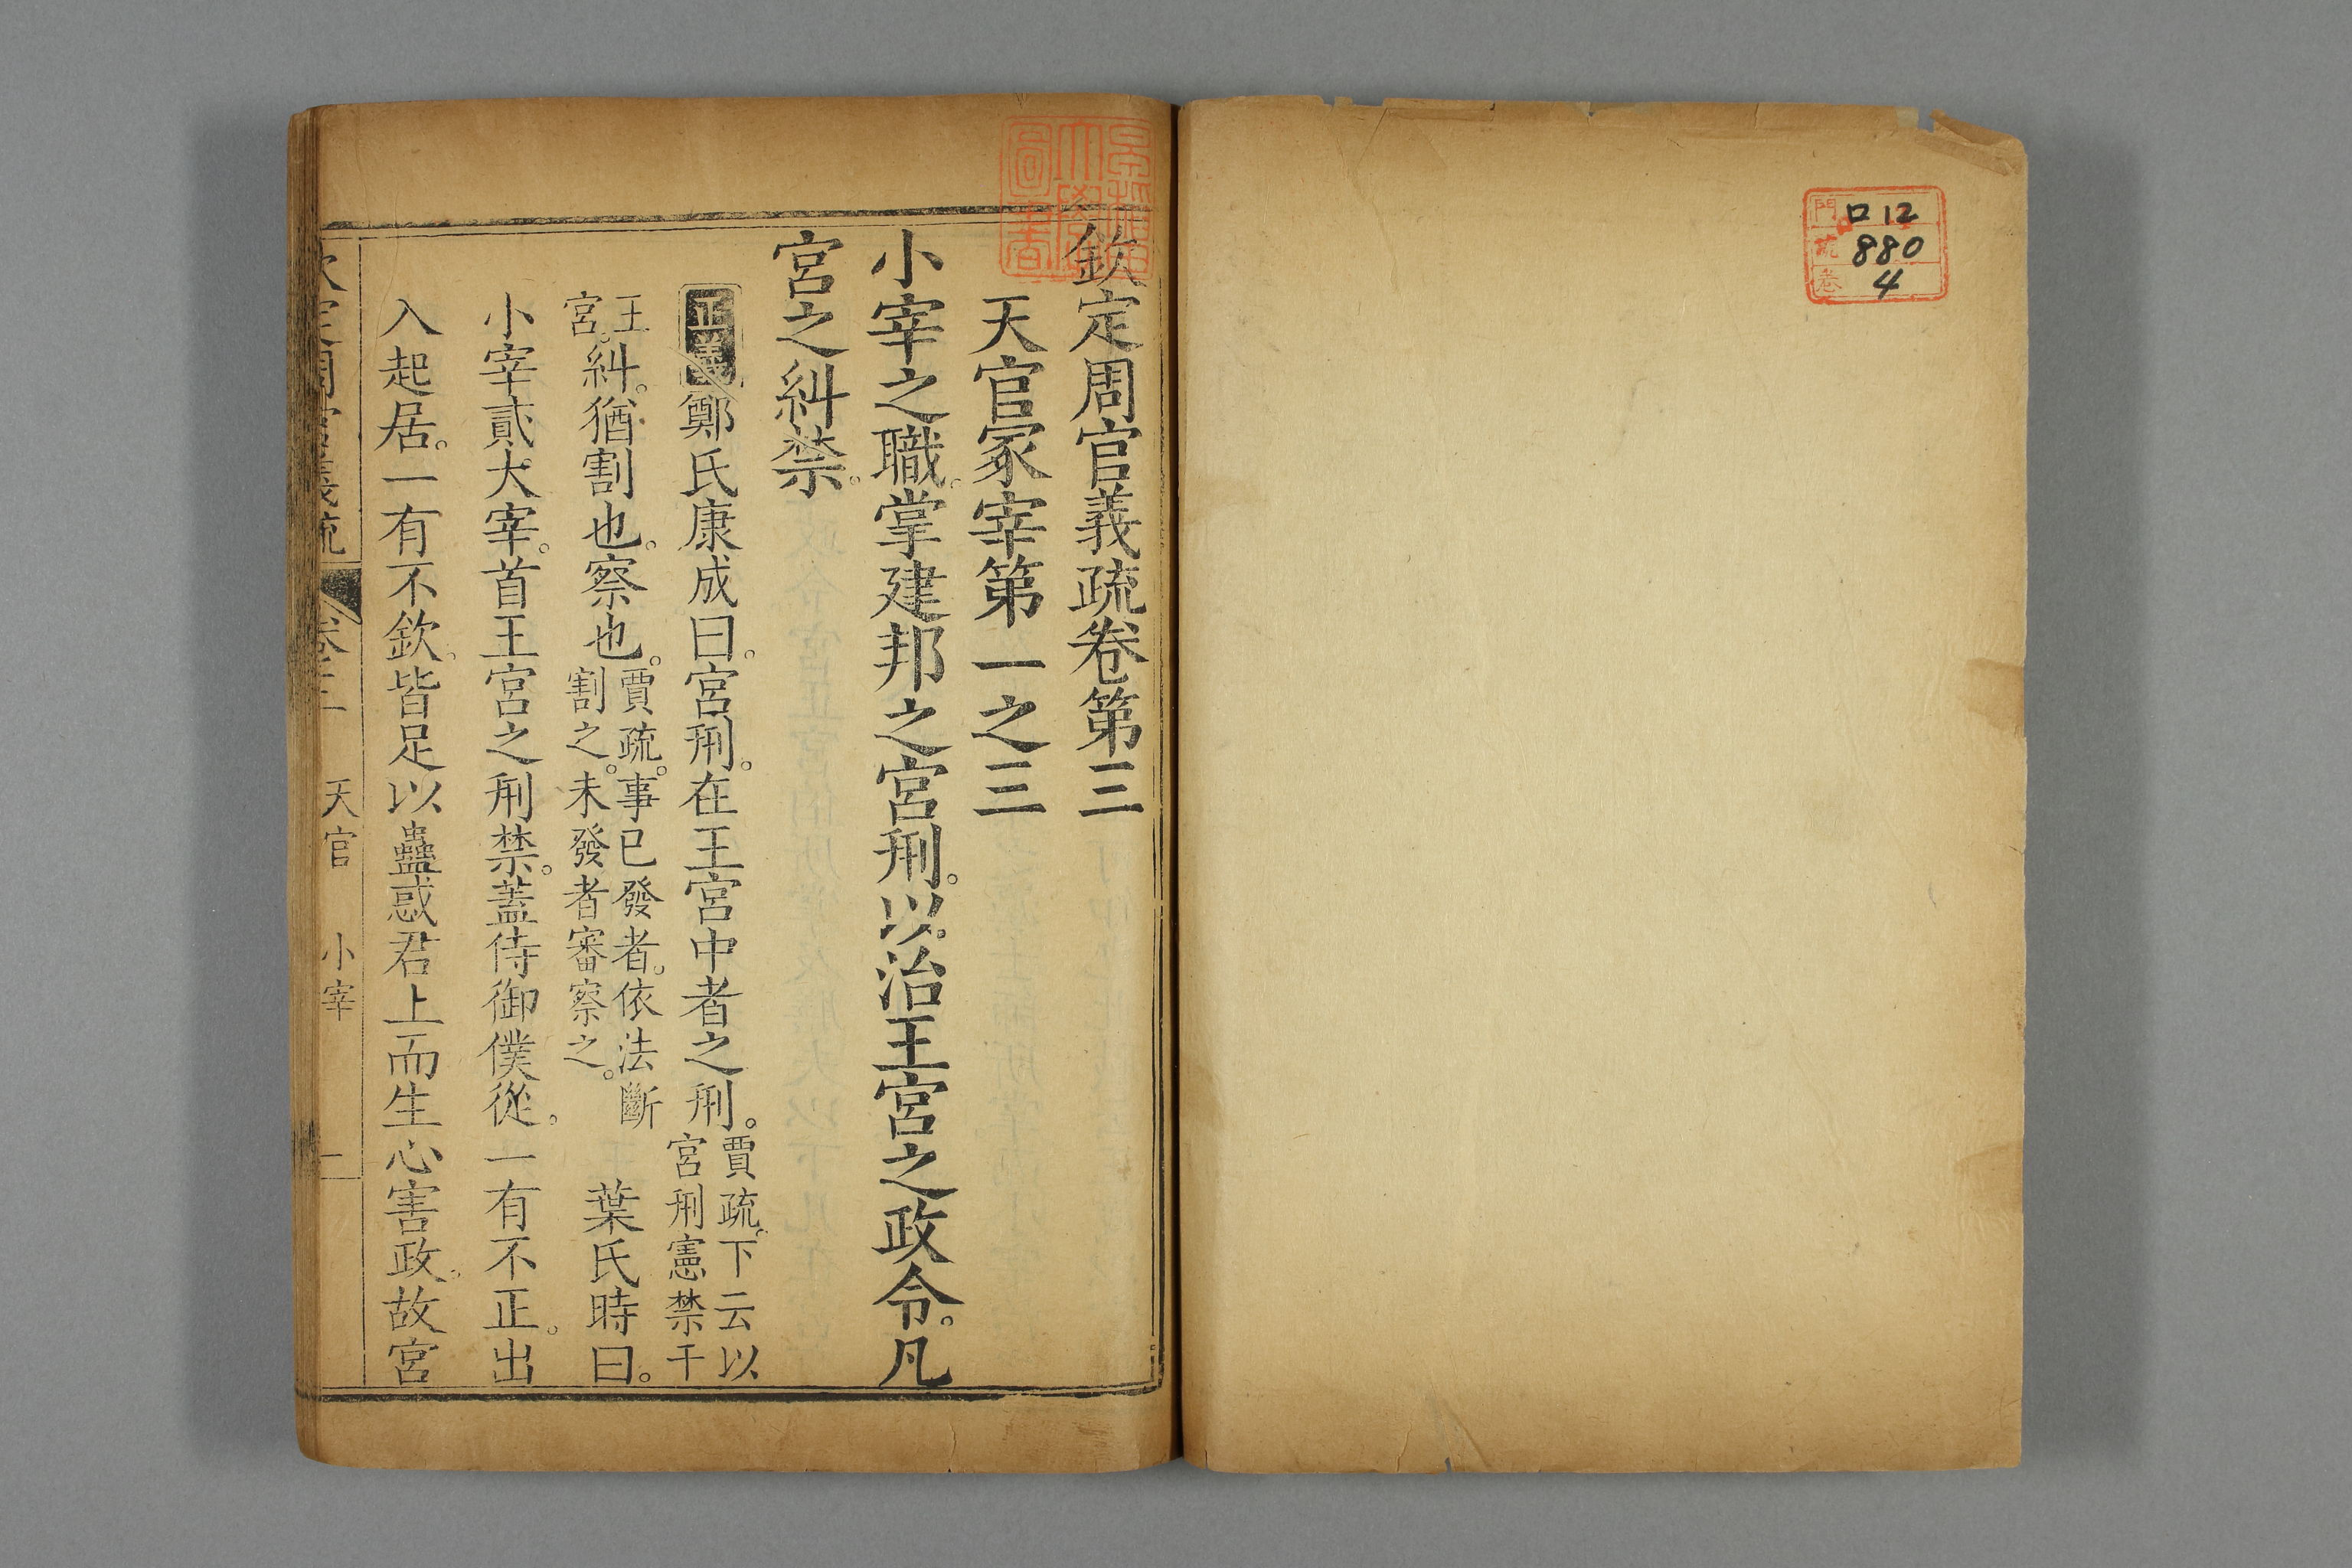 門 口12
號 880
卷 4
早稲田大學圖書
欽定周官義疏卷第三
天官冢宰第一之三
小宰之職。掌建邦之宮刑。以治王宮之政令。凡
宮之糾禁。
正義鄭氏康成曰。宮刑。在王宮中者之刑。賈疏。下云以宮刑憲禁于
王宮。糾。猶割也。察也。賈疏。事已發者。依法斷割之。未發者審察之。 葉氏時曰。
小宰貳大宰。首王宮之刑禁。蓋侍御僕從。一有不正。出
入起居。一有不欽。皆足以蠱惑君上而生心害政。故宮
欽定周官義疏 卷三 天官 小宰